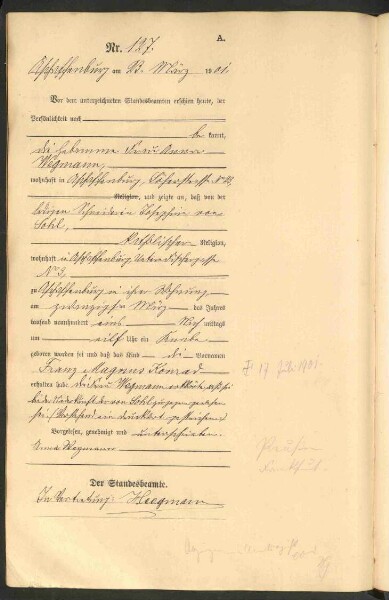 A.
Nr. 127.
Aschaffenburg am 23. März 1901.
Vor dem unterzeichneten Standesbeamten erschien heute, der
Persönlichkeit nach
be kannt,
die Hebamme Frau Anna
Wegmann,
wohnhaft in Aschaffenburg,
Religion, und zeigte an, daß von der
ledigen Schneiderin Josephine von
Sohl,
katholischer Religion,
wohnhaft in Aschaffenburg, Unterfischergasse
No 3,
zu Aschaffenburg in ihrer Wohnung
am zwanzigsten März des Jahres
tausend neunhundert eins Nach mittags
um elf Uhr ein Knabe
geboren worden sei und daß das Kind die Vornamen
Franz Magnus Konrad
erhalten habe. Die Frau Wegmann erklärte, daß sie
bei der Niederkunft der von Sohl zugegen gewesen
sei. (Vorstehend ein Druckwort gestrichen.)
Vorgelesen, genehmigt und unterschrieben.
Anna Wegmann
Der Standesbeamte.
In Vertretung: